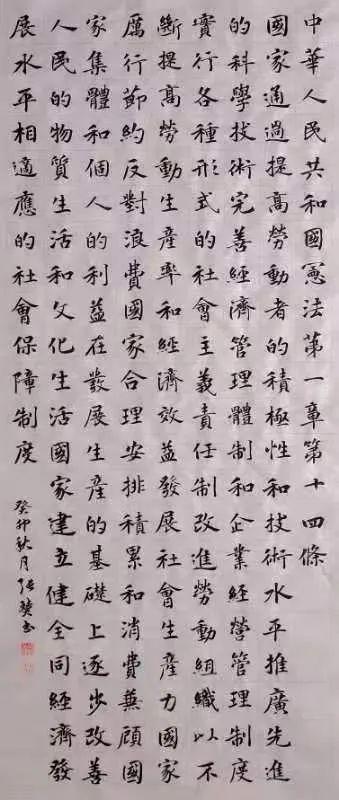 中華人民共和國憲法第一章第十四條
國家通過提高勞動者的積極性和技術水平推廣先進
的科學技術完善經濟管理體制和企業經營管理制度
實行各種形式的社會主義責任制改進勞動組織以不
斷提高勞動生產率和經濟效益發展社會生產力國家
厲行節約反對浪費國家合理安排積累和消費兼顧國
家集體和個人的利益在發展生產的基礎上逐步改善
人民的物質生活和文化生活國家建立健全同經濟發
展水平相適應的社會保障制度
癸卯秋月張書